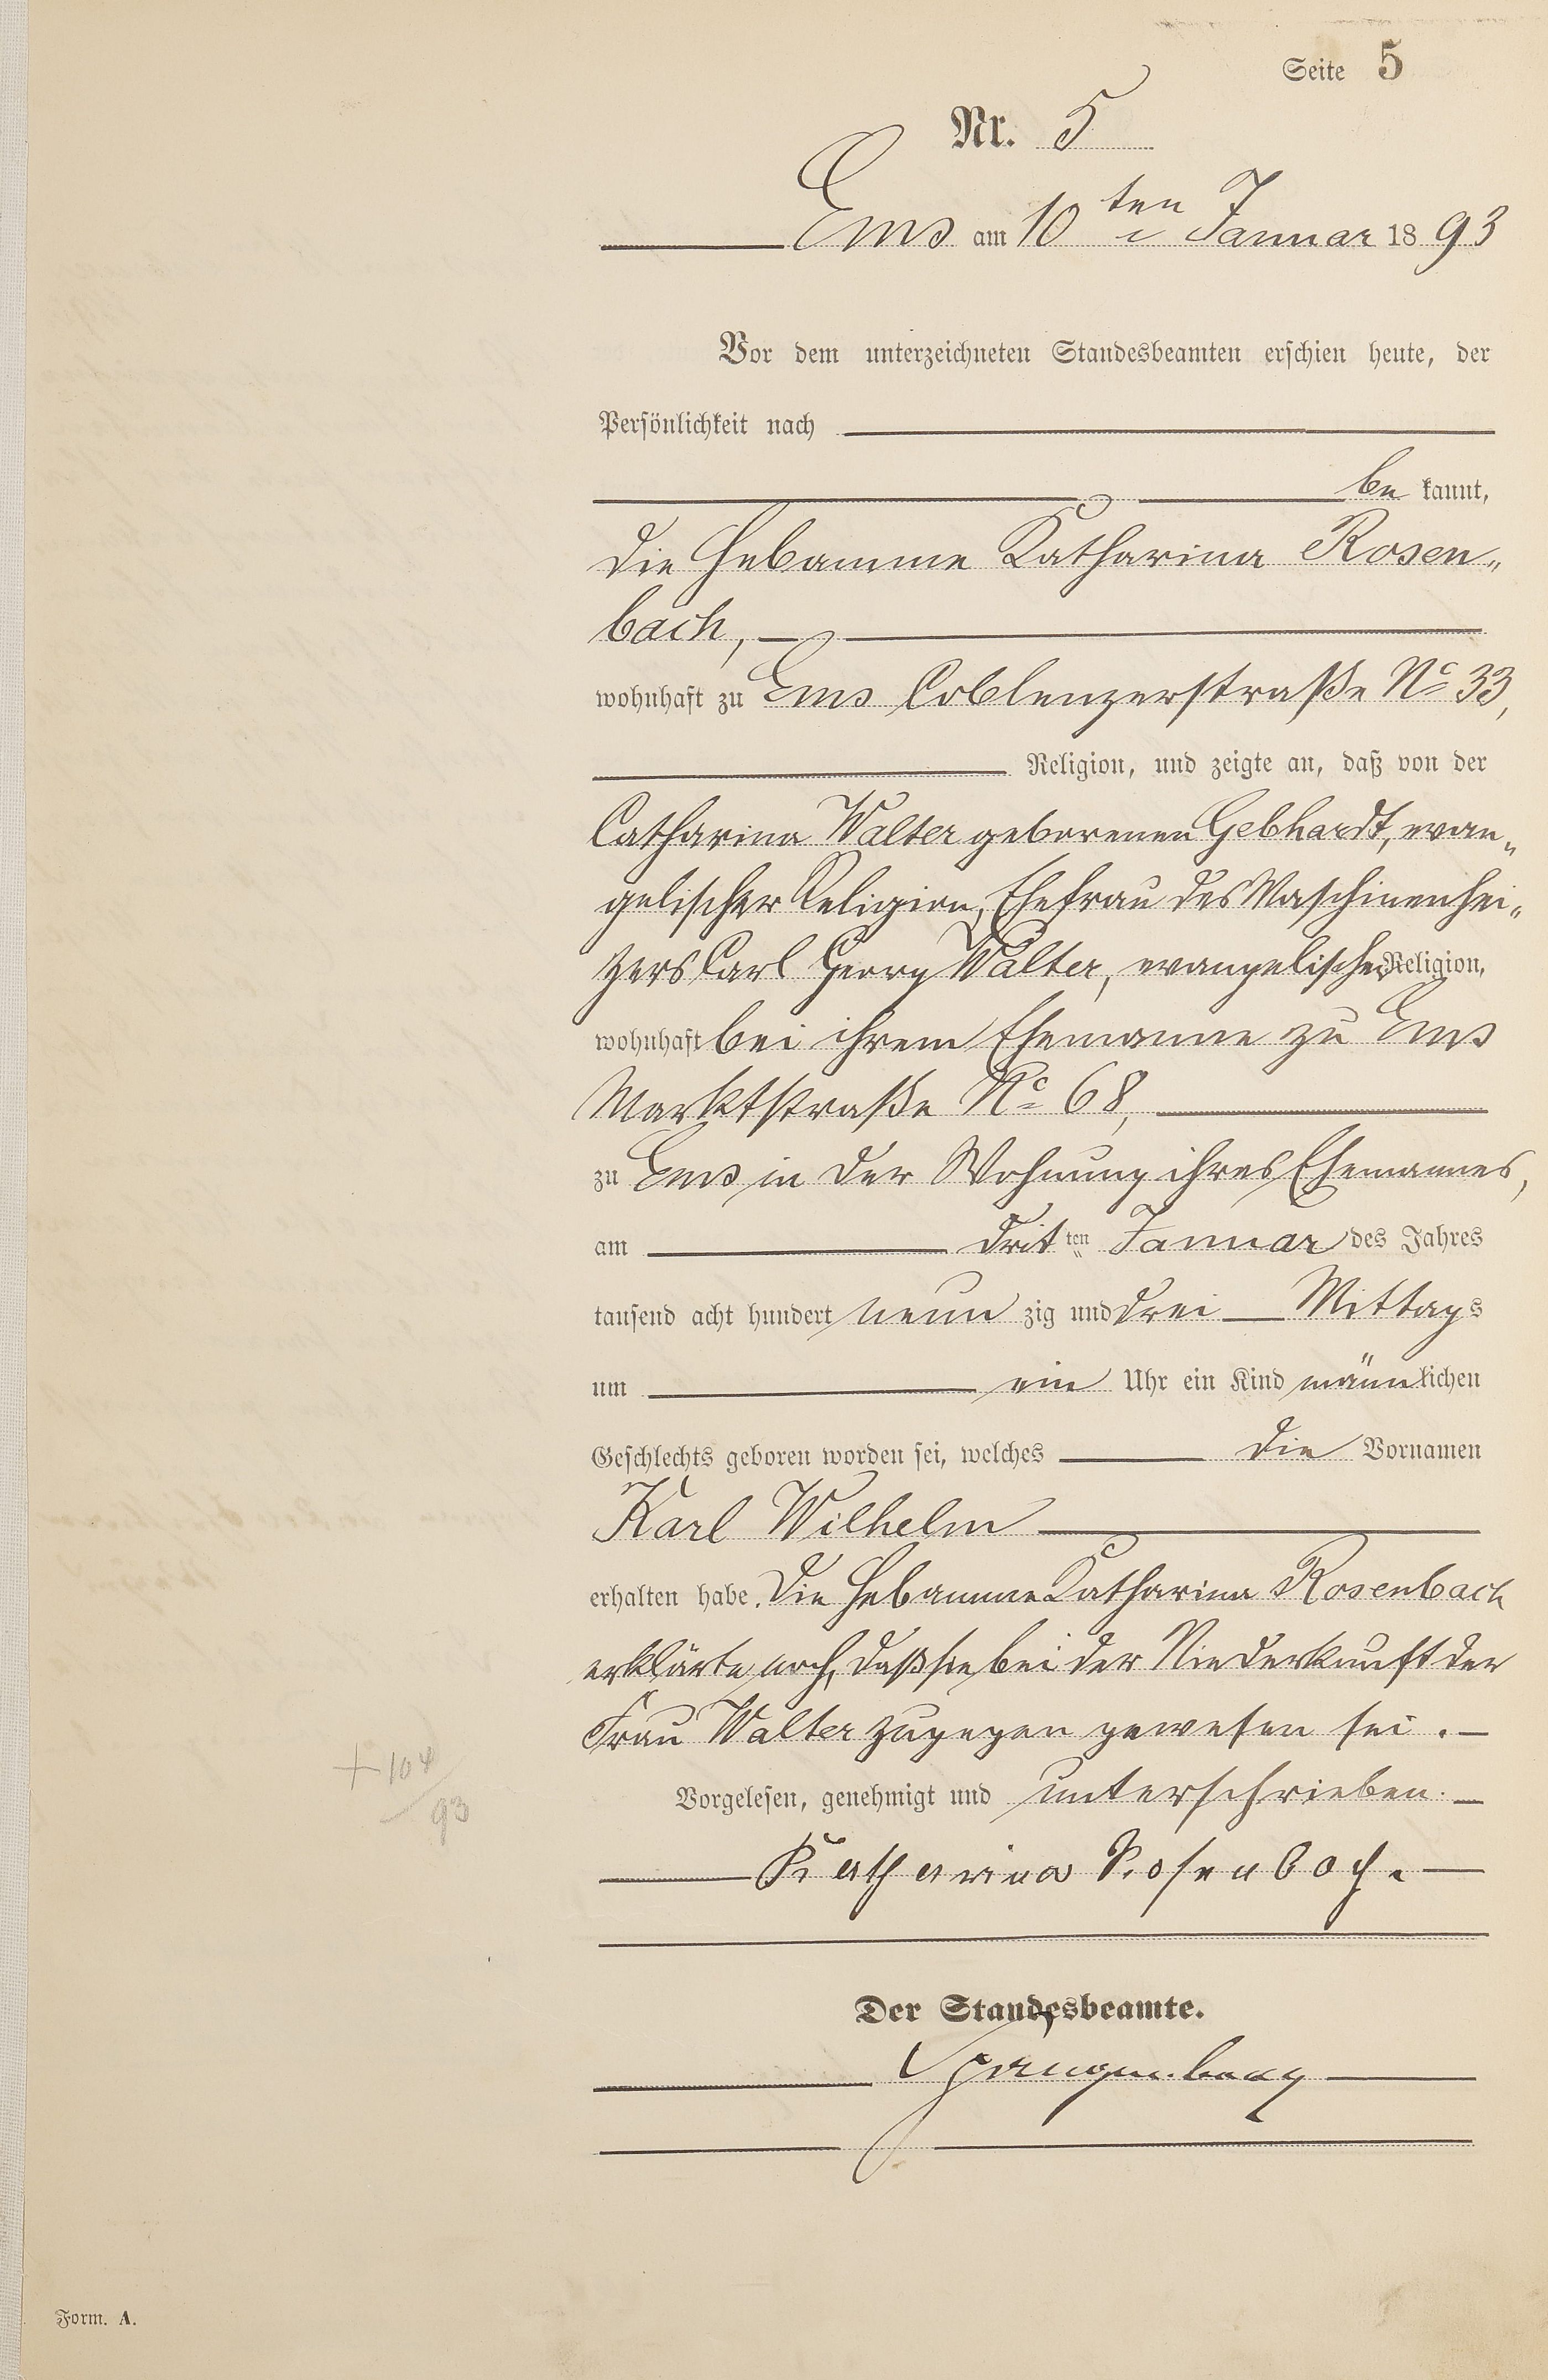 Seite 5
Nr. 5
Ems am 10ten Januar 1893
Vor dem unterzeichneten Standesbeamten erschien heute, der
Persönlichkeit nach
be kannt,
die Hebamme Katharina Rosen„
bach,
wohnhaft zu Ems Coblenzerstraße No 33,
Religion, und zeigte an, daß von der
Catharina Walter geborenen Gebhardt, evan„
gelischer Religion, Ehefrau des Maschinenhei„
zers Carl Georg Walter, evangelischer Religion,
wohnhaft bei ihrem Ehemanne zu Ems
Marktstraße No 68,
zu Ems in der Wohnung ihres Ehemannes,
am dritten Januar des Jahres
tausend acht hundert neun zig und drei Mittags
um ein Uhr ein Kind männlichen
Geschlechts geboren worden sei, welches die Vornamen
Karl Wilhelm
erhalten habe. Die Hebamme Katharina Rosenbach
erklärte noch, daß sie bei der Niederkunft der
Frau Walter zugegen gewesen sei.
+ 104
/93
Vorgelesen, genehmigt und unterschrieben.
Katharina Rosenbach.
Der Standesbeamte.
Spangenberg
Form. A.